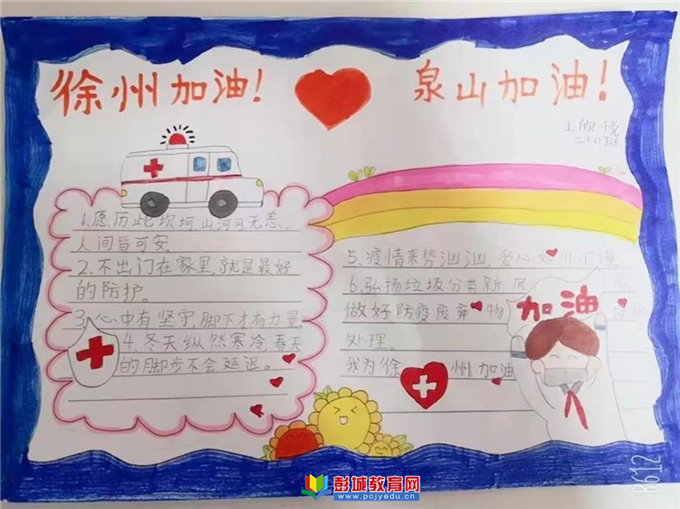 徐州加油!
泉山加油!
1.愿历此坎坷山河可无恙,
人间皆可安。
2.不出门在家里,就是最好
的防护。
3.心中有坚守,脚下才有力量
4.冬天纵然寒冷,春天
的脚步不会延迟。
5.疫情来势汹汹,爱心
6.弘扬垃圾分类新
做好防疫废弃物
处理。
我为徐州加油
加油
B612
彭城教育网
www.pcjyedu.cn